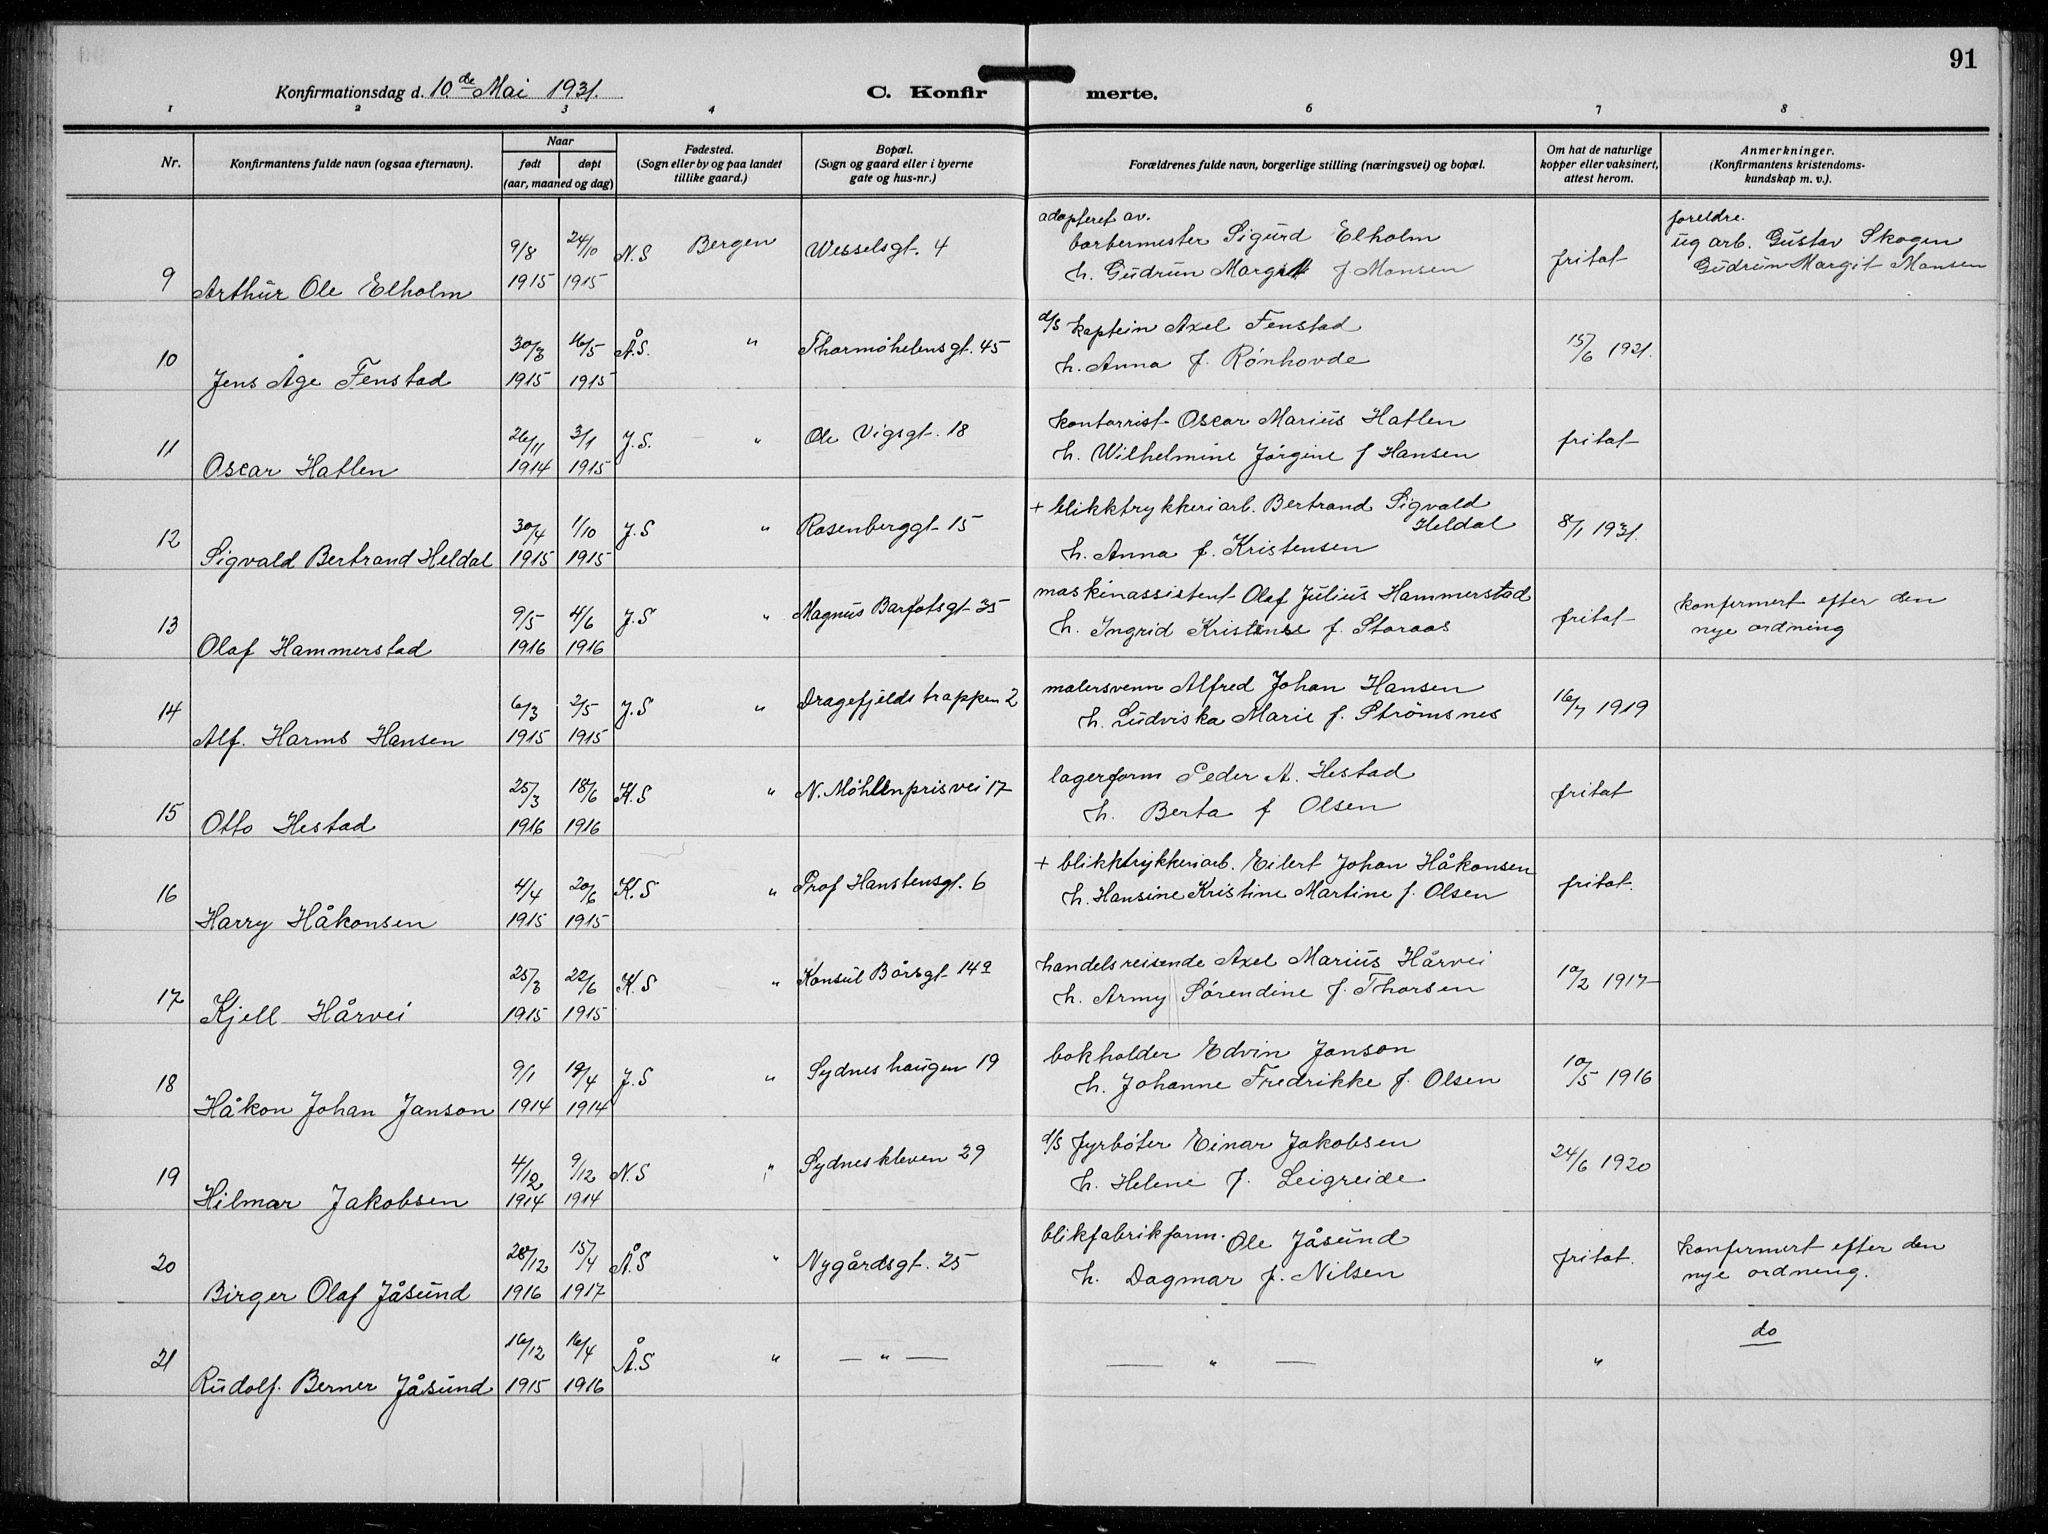 91
Konfirmationsdag d. 10de Mai 1931.
C. Konfir merte.
1 2 3 4 6 7 8
Nr.
Konfirmantens fulde navn (ogsaa efternavn).
Naar
født døpt
(aar, maaned og dag)
Fødested.
(Sogn eller by og paa landet
tillike gaard.)
Bopæl.
(Sogn og gaard eller i byerne
gate og hus-nr.)
Forældrenes fulde navn, borgerlige stilling (næringsvei) og bopæl.
Om hat de naturlige
kopper eller vaksinert,
attest herom.
Anmerkninger.
(Konfirmantens kristendoms-
kundskap m. v.).
adopteret av. foreldre.
9/8 24/10 N.S Bergen Wesselsgt. 4 barbermester Sigurd Elholm fritat ug arb. Gustav Skogen
9 Arthur Ole Elholm 1915 1915 h. Gudrun Margit f Monsen Gudrun Margit Monsen
30/3 16/5 Å.S. " Thormøhelensgt. 45 d/s kaptein Axel Fenstad 15/6 1921.
10 Jens Åge Fenstad 1915 1915 h. Anna f. Rønhovde
26/11 3/1 J.S. " Ole Vigsgt. 18 kontorrist Oscar Marius Hatlen fritat
11 Oscar Hatlen 1914 1915 h. Wilhelmine Jørgine f Hansen
30/4 1/10 J.S " Rosenberggt 15 + blikktrykkeriarb. Bertrand Sigvald
Heldal 8/1 1931.
12 Sigvald Bertrand Heldal 1915 1915 h. Anna f. Kristensen
9/5 4/6 J.S " Magnus Barfotsgt 35 maskinassistent Olaf Julius Hammerstad fritat konfermert efter den
13 Olaf Hammerstad 1916 1916 h. Ingrid Kristense f. Storaas nye ordning
6/3 2/5 J.S " Dragefjelds trappen 2 malersvenn Alfred Johan Hansen 16/7 1919
14 Alf. Harms Hansen 1915 1915 h. Ludviska Marie f. Strömsnes
25/3 18/6 K.S " N. Möhlenprisvei 17 lagerform Peder A. Hestad fritat
15 Otto Hestad 1916 1916 h. Berta f Olsen
4/4 20/6 K.S " Prof Hanstensgt. 6 + blikktrykkeriarb. Eilert Johan Håkonsen fritat.
16 Harry Håkonsen 1915 1915 h. Hansine Kristine Martine f. Olsen
25/3 22/6 K.S " Konsul Börsgt 14a handelsreisende Axel Marius Hårvei 10/2 1917
17 Kjell Hårvei 1915 1915 h. Army Sørendine f. Thorsen
9/1 19/4 J.S " Sydneshaugen 19 bokholder Edvin Janson 10/5 1916
18 Håkon Johan Janson 1914 1914 h. Johanne Fredrikke f. Olsen
4/12 9/12 N.S " Sydneskleven 29 d/s fyrbøter Einar Jakobsen 24/6 1920
19 Hilmar Jakobsen 1914 1914 h. Helene f. Leigreide
28/12 15/4 Å.S " Nygårdsgt. 25 blikfabrikform. Ole Jåsund fritat. konfermert efter den
20 Birger Olaf Jåsund 1916 1917 h. Dagmar f. Nilsen nye ordning.
16/12 16/4 Å.S " — " — — " — " do
21 Rudolf Berner Jåsund 1915 1916